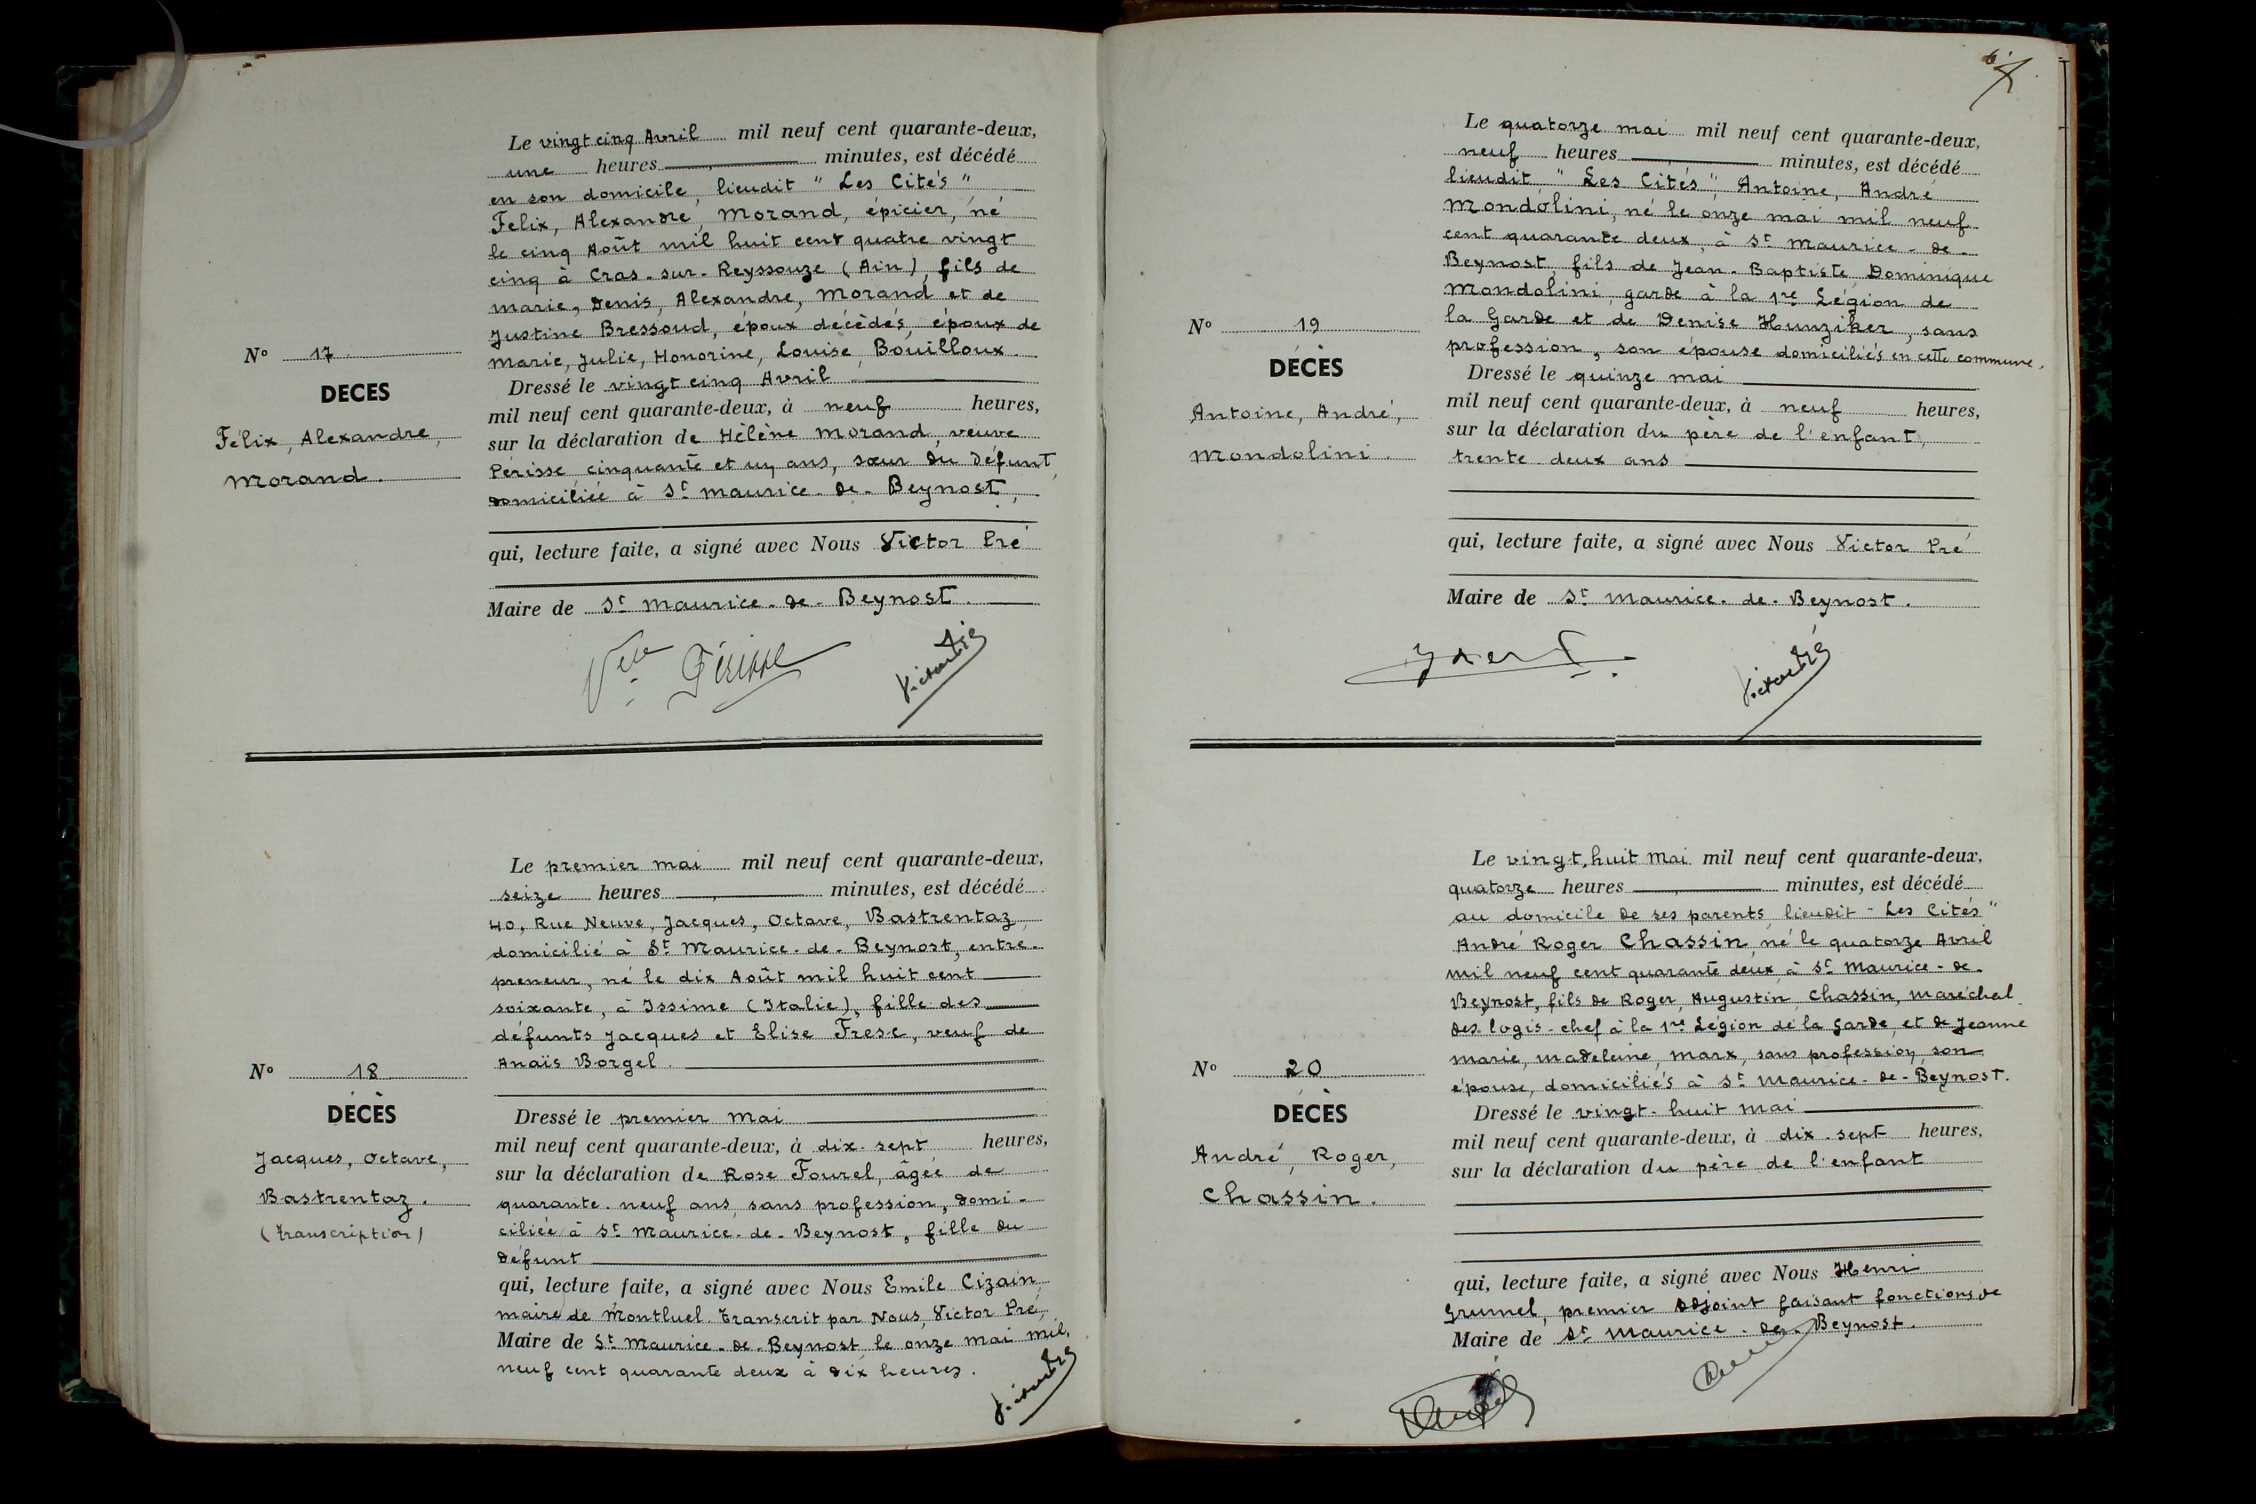 Le vingt cinq Avril mil neuf cent quarante-deux,
une heures minutes, est décédé
en son domicile, lieudit " Les Cités "
Felix, Alexandre, Morand, épicier, né
le cinq Août mil huit cent quatre vingt
cinq à Cras-sur-Reyssouze (Ain), fils de
Marie, Denis, Alexandre, Morand et de
Justine Bressoud, époux décédés, époux de
Marie, Julie, Honorine, Louise, Bouilloux.
N° 17
DECES
Félix, Alexandre,
Morand.
Dressé le vingt cinq Avril
mil neuf cent quarante-deux, à neuf heures,
sur la déclaration de Hélène Morand, veuve
Périsse, cinquante et un ans, sœur du défunt,
domiciliée à St Maurice-de-Beynost,
qui, lecture faite, a signé avec Nous Victor Pré
Maire de St Maurice-de-Beynost.
Vve Périsse Victor Pré
Le premier mai mil neuf cent quarante-deux,
seize heures minutes, est décédé
40, Rue Neuve, Jacques, Octave, Bastrentaz
domicilié à St Maurice-de-Beynost, entre-
preneur, né le dix Août mil huit cent
soixante, à Issime (Italie), fille des
défunts Jacques et Elise Fresc, veuf de
Anaïs Borgel.
N° 18
DÉCÈS
Jacques, Octave,
Bastrentaz.
(transcription)
Dressé le premier Mai
mil neuf cent quarante-deux, à dix-sept heures,
sur la déclaration de Rose Fourel, âgée de
quarante-neuf ans, sans profession, domi-
ciliée à St Maurice-de-Beynost, fille du
défunt
qui, lecture faite, a signé avec Nous Emile Cizain,
maire de Montluel. Transcrit par Nous, Victor Pré,
Maire de St Maurice-de-Beynost, le onze Mai mil
neuf cent quarante deux à dix heures.
Victor Pré
Le quatorze mai mil neuf cent quarante-deux,
neuf heures minutes, est décédé
lieudit " Les Cités " Antoine, André
Mondolini, né le onze mai mil neuf
cent quarante deux, à St Maurice-de-
Beynost, fils de Jean-Baptiste Dominique
Mondolini, garde à la 1re Légion de
la Garde et de Denise Hunziker, sans
profession, son épouse domiciliés en cette commune.
N° 19
DÉCÈS
Antoine, André,
Mondolini.
Dressé le quinze mai
mil neuf cent quarante-deux, à neuf heures,
sur la déclaration du père de l'enfant,
trente-deux ans
qui, lecture faite, a signé avec Nous Victor Pré
Maire de St Maurice-de-Beynost.
Victor Pré
Le vingt-huit Mai mil neuf cent quarante-deux,
quatorze heures minutes, est décédé
au domicile de ses parents lieudit - Les Cités "
André Roger Chassin né le quatorze Avril
mil neuf cent quarante deux à St Maurice-de-
Beynost, fils de Roger, Augustin Chassin, maréchal
des logis-chef à la 1re Légion de la Garde, et de Jeanne
Marie, Madeleine, Marx, sans profession, son
épouse, domiciliés à St Maurice-de-Beynost.
N° 20
DÉCÈS
André, Roger,
Chassin.
Dressé le vingt-huit mai
mil neuf cent quarante-deux, à dix-sept heures,
sur la déclaration du père de l'enfant
qui, lecture faite, a signé avec Nous Henri
Grumel, premier adjoint faisant fonctions de
Maire de St Maurice-de-Beynost.